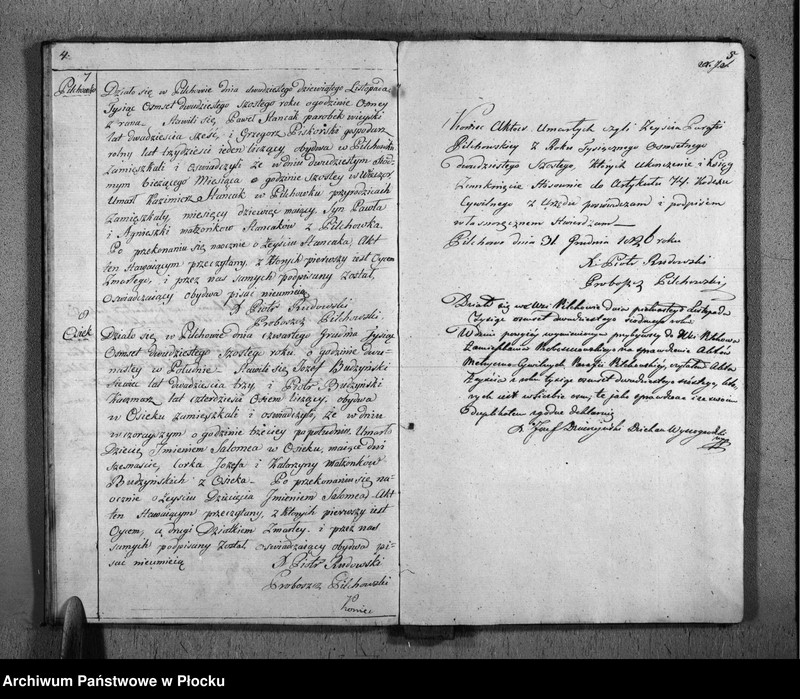 4.
7
Pilchowko
Działo się w Pilchowie dnia dwudziestego dziewiątego Listopada
Tysiąc Osmset dwudziestego Szostego roku o godzinie Osmey
z rana. Stawili się Paweł Stancak parobek wieyski
lat dwadzieścia sześć, i Grzegorz Piskorski gospodarz
rolny lat trzydzieści ieden liczący obydwa w Pilchowku
zamieszkali i Oswiadczyli że w dniu dwudziestym Siod-
mym bieżącego Miesiąca o godzinie Szostey w Wieczor
Umarł Kazimierz Stancak w Pilchowku przy rodzicach
zamieszkały miesięcy dziewięć maiący, Syn Pawła
i Agnieszki małżonków Stancakow z Pilchowka.
Po przekonaniu się naocznie o Zeyściu Stancaka, Akt
ten Stawaiącym przeczytany, z ktorych pierwszy iest Oycem
Zmarłego, i przez nas samych podpisany został,
Oswiadczaiący obydwa pisać nieumieią
X Piotr Rudowski
Proboszcz Pilchowski.
8
Osiek
Działo się w Pilchowie dnia czwartego Grudnia Tysiąc
Osmset dwudziestego Szostego roku, o godzinie dwu-
nastey w Południe. Stawili się Jozef Budzyński
lat dwadzieścia trzy, i Piotr Budzyński
lat czterdzieści Osiem liczący, obydwa
w Osieku zamieszkali i oswiadczyli, że w dniu
wczorayszym o godzinie trzeciey po południu, Umarło
Dziecie Imieniem Salomea w Osieku, maiące dni
szesnaście, corka Jozefa i Katarzyny małżonków
Budzyńskich z Osieka. Po przekonaniu się na-
ocznie o Zeyściu Dziecięcia Imieniem Salomea Akt
ten Stawaiącym przeczytany, z ktorych pierwszy iest
Oycem, a drugi Dziadkiem Zmarłey, i przez nas
samych podpisany został, oswiadczaiący obydwa pi-
sać nieumieią
X Piotr Rudowski
Proboszcz Pilchowski
Koniec
5
Koniec Aktow Umarłych czyli Zeyścia Parafii
Pilchowskiey z Roku Tysiącznego Osmsetnego
dwudziestego Szostego, Ktorych Ukonczenie i Księgi
Zamknięcie Stosownie do Artykułu 74. Kodexu
Cywilnego z Urzędu poswiadczam i podpisem
własnoręcznem stwierdzam
Pilchowo dnia 31 Grudnia 1826 roku
X. Piotr Rudowski
Proboszcz Pilchowski
Działo się we Wsi Pilchowie dnia piętnastego Listopada
Tysiąc osmset dwudziestego siodmego roku
W dniu powyżey wyrażonym przybywszy do Wsi Pilchowa
na sprawdzenie Aktów
Cywilnych Parafii Pilchowskiey, czytałem Akta
Zeyścia z roku tysiąc osmset dwudziestego szostego, któ-
rych iest w liczbie osm, te jako sprawdzone i
z duplikatem zgodne deklaruię
X Jozef Dziekan Wyszogrodzki
Archiwum Państwowe w Płocku